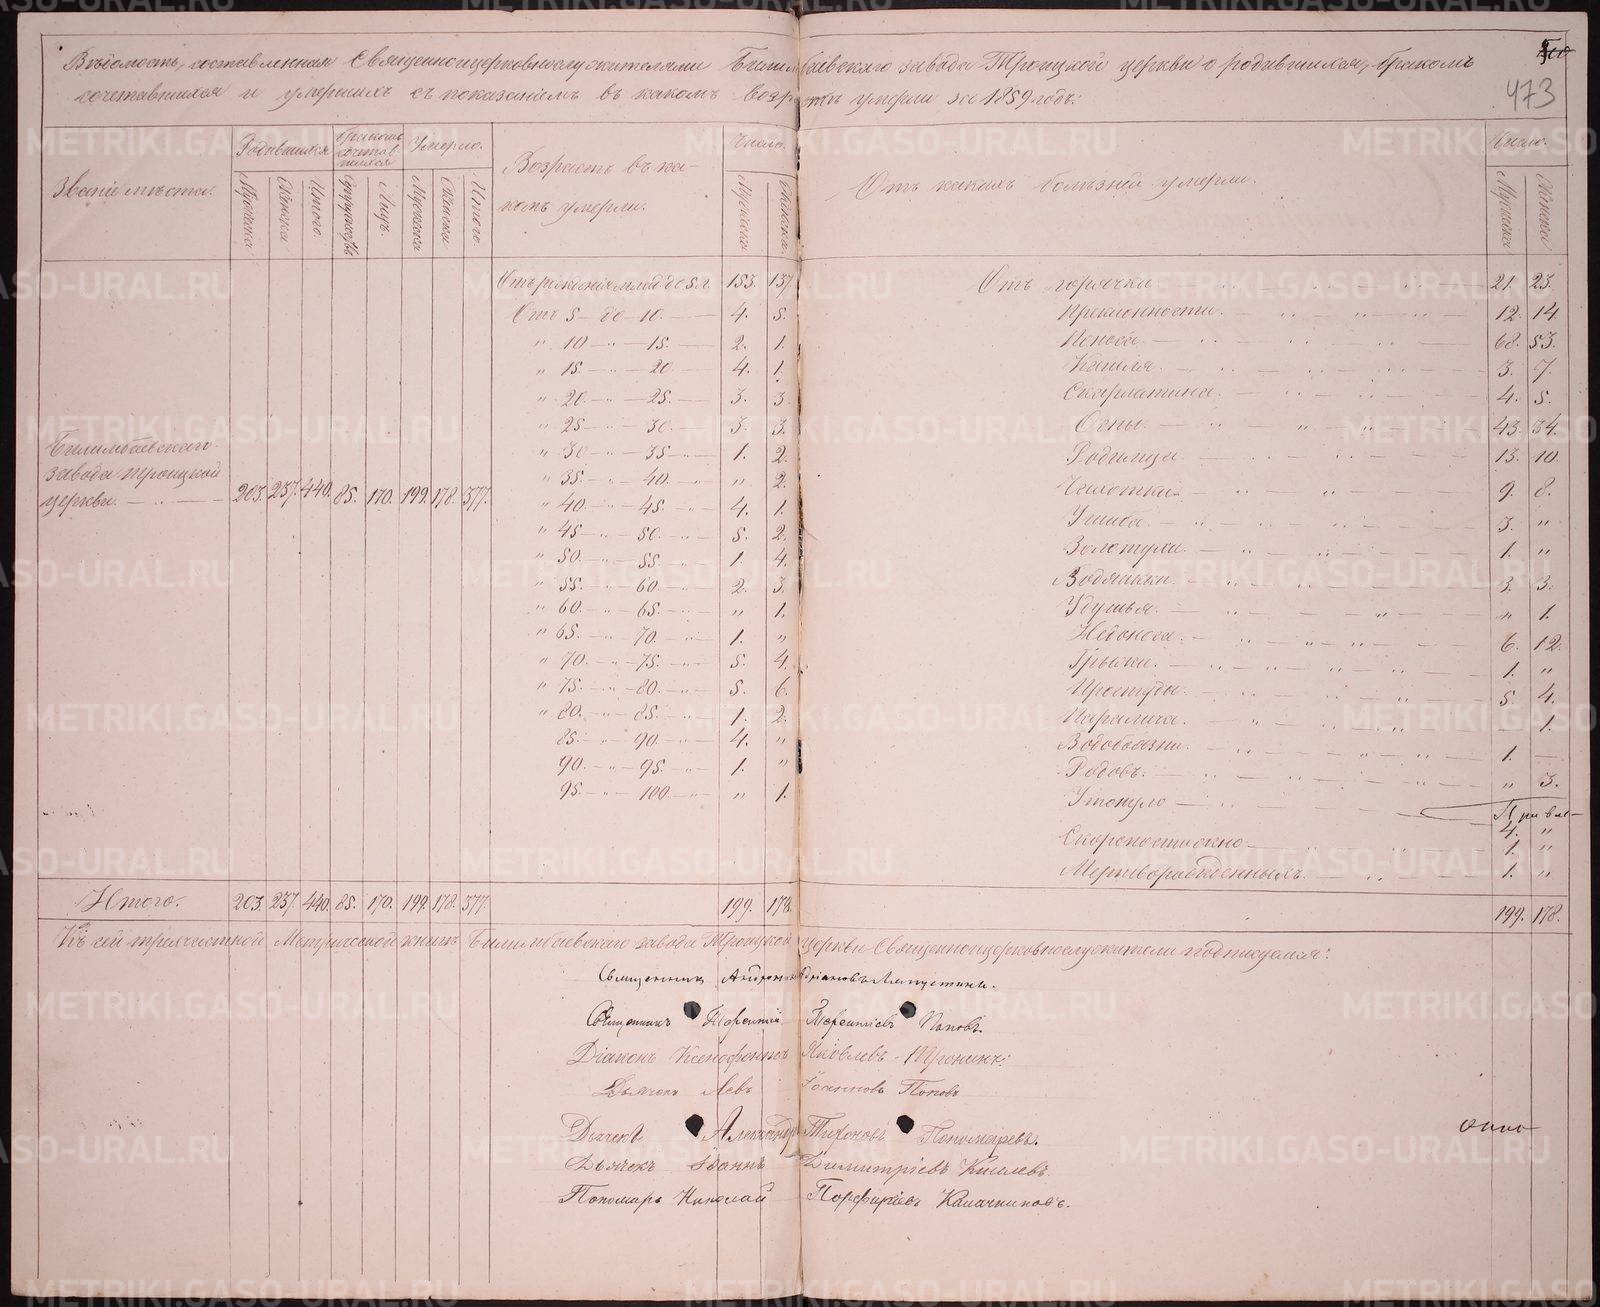 Вѣдомость, составленная Священноцерковнослужителями Билимбаевскаго завода Троицкой церкви о родившихся, бракомъ
сочетавшихся и умершихъ съ показанiемъ въ какомъ возрастѣ умерли за 1859 годъ:
473
Званiе мѣста.
Родившихся
Мужеска
Женска
Итого.
Бракомъ сочетавшихся
Супружествъ
Лицъ.
Умерло.
Мужеска
Женска
Итого.
Возрастъ въ ка-
комъ умерли.
Число.
Мужска
Женска
Отъ какихъ болѣзней умерли.
Число.
Мужска
Женска
Билимбаевскаго
завода Троицкой
церкви. 203. 237. 440. 85. 170. 199. 178. 377.
Отъ рожденiя до 5 л. 153. 137.
Отъ 5 — до 10. 4. 5.
" 10 — " — 15. 2. 1.
" 15. — " — 20 4. 1.
" 20. — " — 25. 3. 3.
" 25 — " — 30. 3. 3.
" 30 — " — 35. 1. 2.
" 35. — " — 40. " 2.
" 40. — " — 45. 4. 1.
" 45 — " — 50. 5. 2.
" 50. — " — 55. 1. 4.
" 55. — " — 60. 2. 3.
" 60. — " — 65. " 1.
" 65. — " — 70. 1. "
" 70. — " — 75. 5. 4.
" 75. — " — 80. 5. 6.
" 80. — " — 85. 1. 2.
85. — " — 90. 4. "
90. — " — 95. 1. "
95. — " — 100. " 1.
Отъ горячки 21. 23.
Преклонности. 12. 14.
Поноса. 68. 53.
Кашля. 3. 7.
Скарлатина. 4. 5.
Оспы. 43. 34.
Родимца 13. 10.
Чахотки. 9. 8.
Ушиба. 3. "
Золотухи. 1. "
Водянки. 3. 3.
Удушья. " 1.
Недоноса. 6. 12.
Грыжи. 1. "
Простуды. 5. 4.
Паралича. — 1.
Водобоязни. 1. —
Родовъ. " 3.
Утонуло 4. "
Скоропостижно 1. "
Мертворожденныхъ. 1. "
Итого. 203. 237. 440. 85. 170. 199. 178. 377. 199. 178. 199. 178.
Къ сей трехчастной Метрической книгѣ Билимбаевскаго завода Троицкой церкви Священноцерковнослужители подписуемся:
Священникъ
Священникъ Терентiй Терентiевъ Поповъ.
Дiаконъ Ксенофонтъ Яковлевъ Пронинъ:
Дьячекъ Левъ Iоанновъ Поповъ
Дьячекъ Александръ Тихоновъ Пономаревъ.
Дьячекъ Iоаннъ Димитрiевъ Киселевъ.
Пономарь Николай Порфирiевъ Калачниковъ.
METRIKI.GASO-URAL.RU